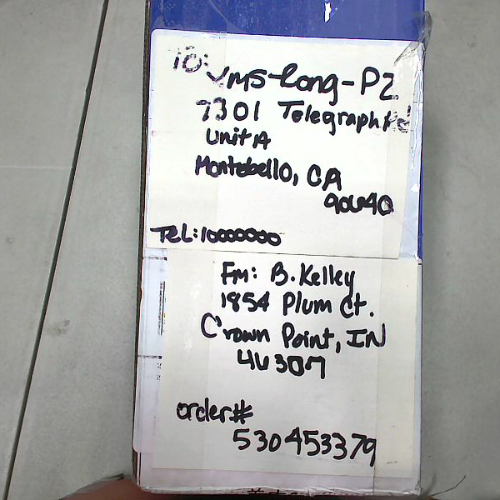 TO: JMS-Long-PZ
7301 Telegraph Rd
Unit A
Montebello, CA
90640
TEL:10000000
Fm: B. Kelley
1854 Plum Ct.
Crown Point, IN
46307
order#
530453379